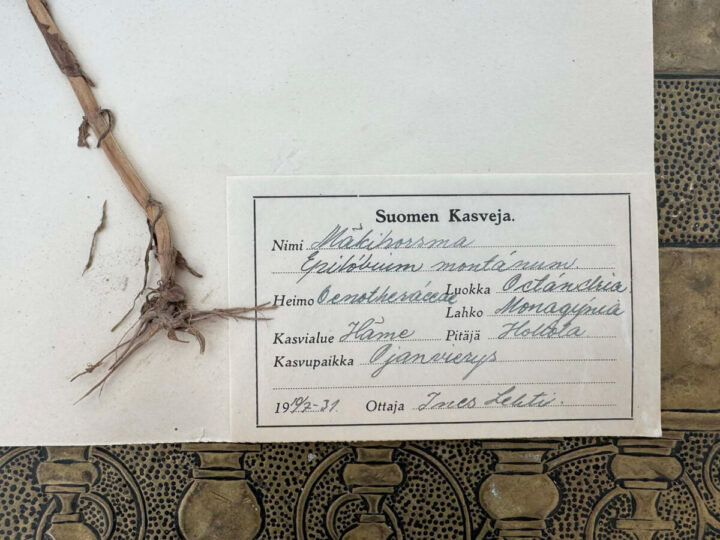 Suomen Kasveja.
Nimi Mäkihorsma
Epilóbium montánum.
Heimo Oenotheráceae Luokka Octándria
Lahko Monogýnia
Kasvialue Häme Pitäjä Hollola
Kasvupaikka Ojanvierys
19 -31 Ottaja Ines Lehti.